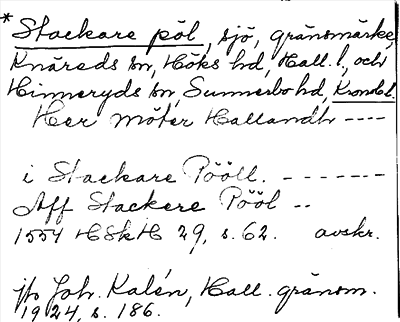 * Stackare pöl, sjö, gränsmärke,
Knäreds sn, Höks hd, Hall. l., och
Hinneryds sn, Sunnerbo hd, Kronob l.
Her möter Hallandh ----
i Stackare Pööll. - - - - - - -
Aff Stackere Pööl --
1554 HSkH 29, s. 62. avskr.
jfr Joh. Kalén, Hall. gränsm.
1924, s. 186.